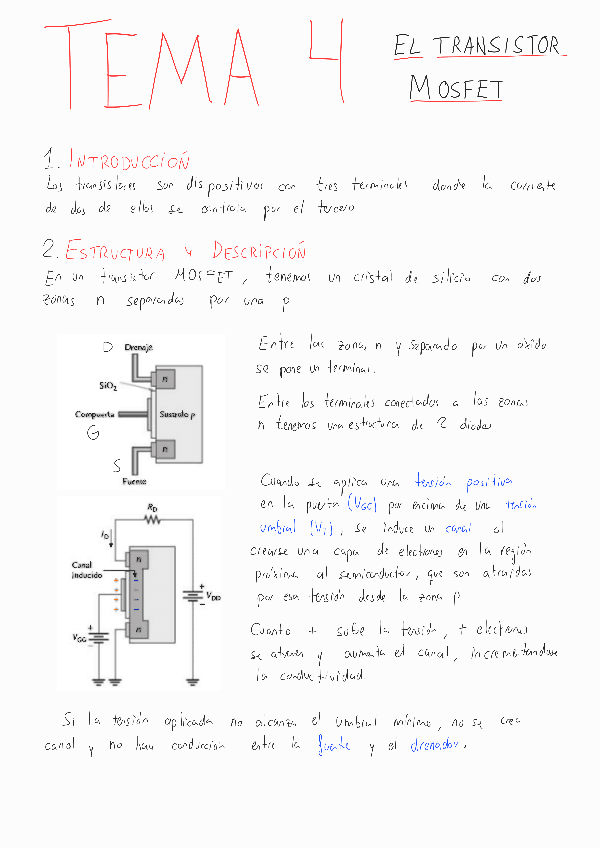 TEMA 4
EL TRANSISTOR
MOSFET
1. INTRODUCCIÓN
Los transistores son dispositivos con tres terminales donde la corriente
de dos de ellos se controla por el tercero
2. ESTRUCTURA Y DESCRIPCIÓN
En un transistor MOSFET, tenemos un cristal de silicio con dos
zonas n separadas por una p
D Drenaje
n
SiO2
Compuerta
Sustrato p
G
n
S
Fuente
Entre las zonas n y separado por un óxido
se pone un terminal.
Entre los terminales conectados a las zonas
n tenemos una estructura de 2 diodos
RD
ID
n
Canal
inducido
VDD
VGG
n
Cuando se aplica una tensión positiva
en la puerta (VGG) por encima de una tensión
umbral (VT), se induce un canal al
crearse una capa de electrones en la región
próxima al semiconductor, que son atraidos
por esa tensión desde la zona p
Cuanto + sube la tensión, + electrones
se atraen y aumenta el canal, incrementandose
la conductividad
Si la tensión aplicada no alcanza el umbral mínimo, no se crea
canal y no hay conducción entre la fuente y el drenador.